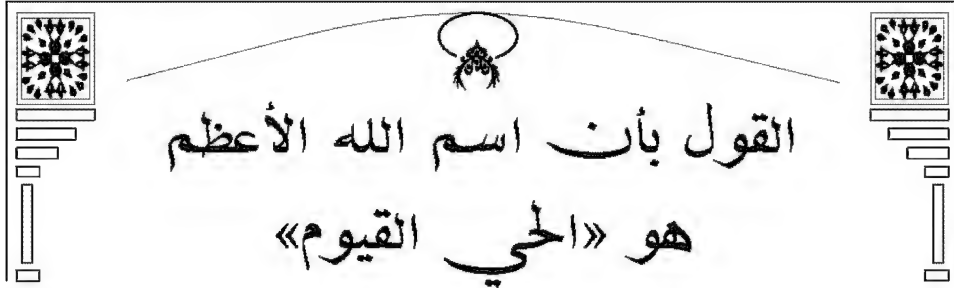 القول بأن اسم الله الأعظم
هو «الحي القيوم»